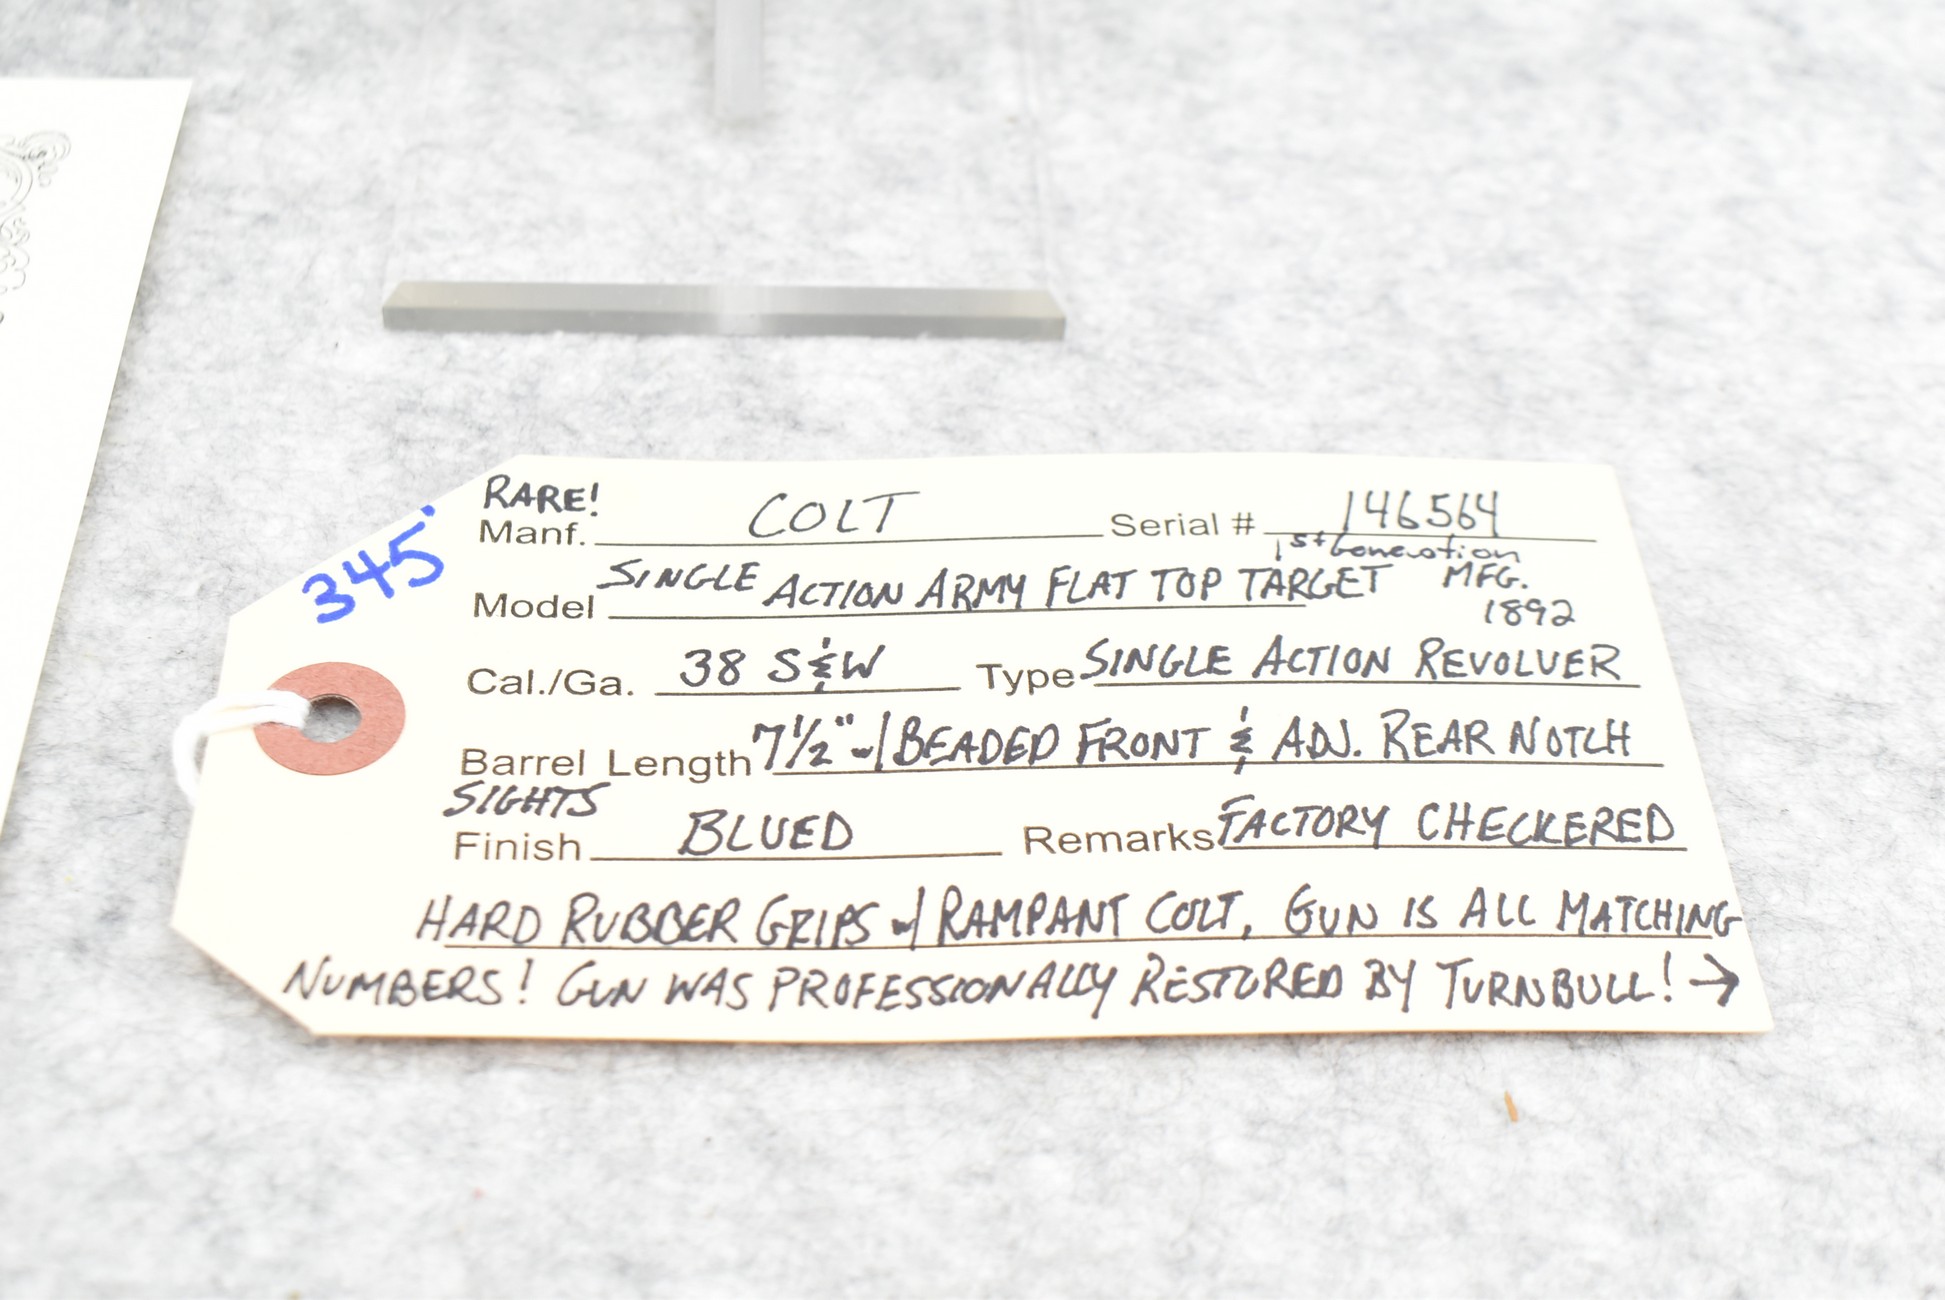 345
RARE!
Manf. COLT Serial # 146564
1st Generation
Model SINGLE ACTION ARMY FLAT TOP TARGET MFG.
1892
Cal./Ga. 38 S&W Type SINGLE ACTION REVOLVER
Barrel Length 7½" w/ BEADED FRONT & ADJ. REAR NOTCH
SIGHTS
Finish BLUED Remarks FACTORY CHECKERED
HARD RUBBER GRIPS w/ RAMPANT COLT, GUN IS ALL MATCHING
NUMBERS! GUN WAS PROFESSIONALLY RESTORED BY TURNBULL! →